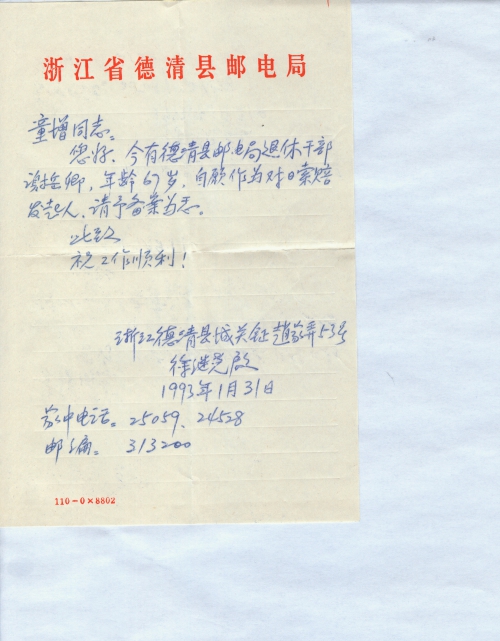 浙江省德清县邮电局
童增同志:
您好、今有德清县邮电局退休干部
岳卿,年龄67岁,自愿作为对日索赔
发起人,请予备案为志。
此致
祝工作顺利!
浙江德清县城关镇赵家弄53号
徐继尧启
1993年1月31日
家中电话:25059、24528
邮编:313200
110-0×8802